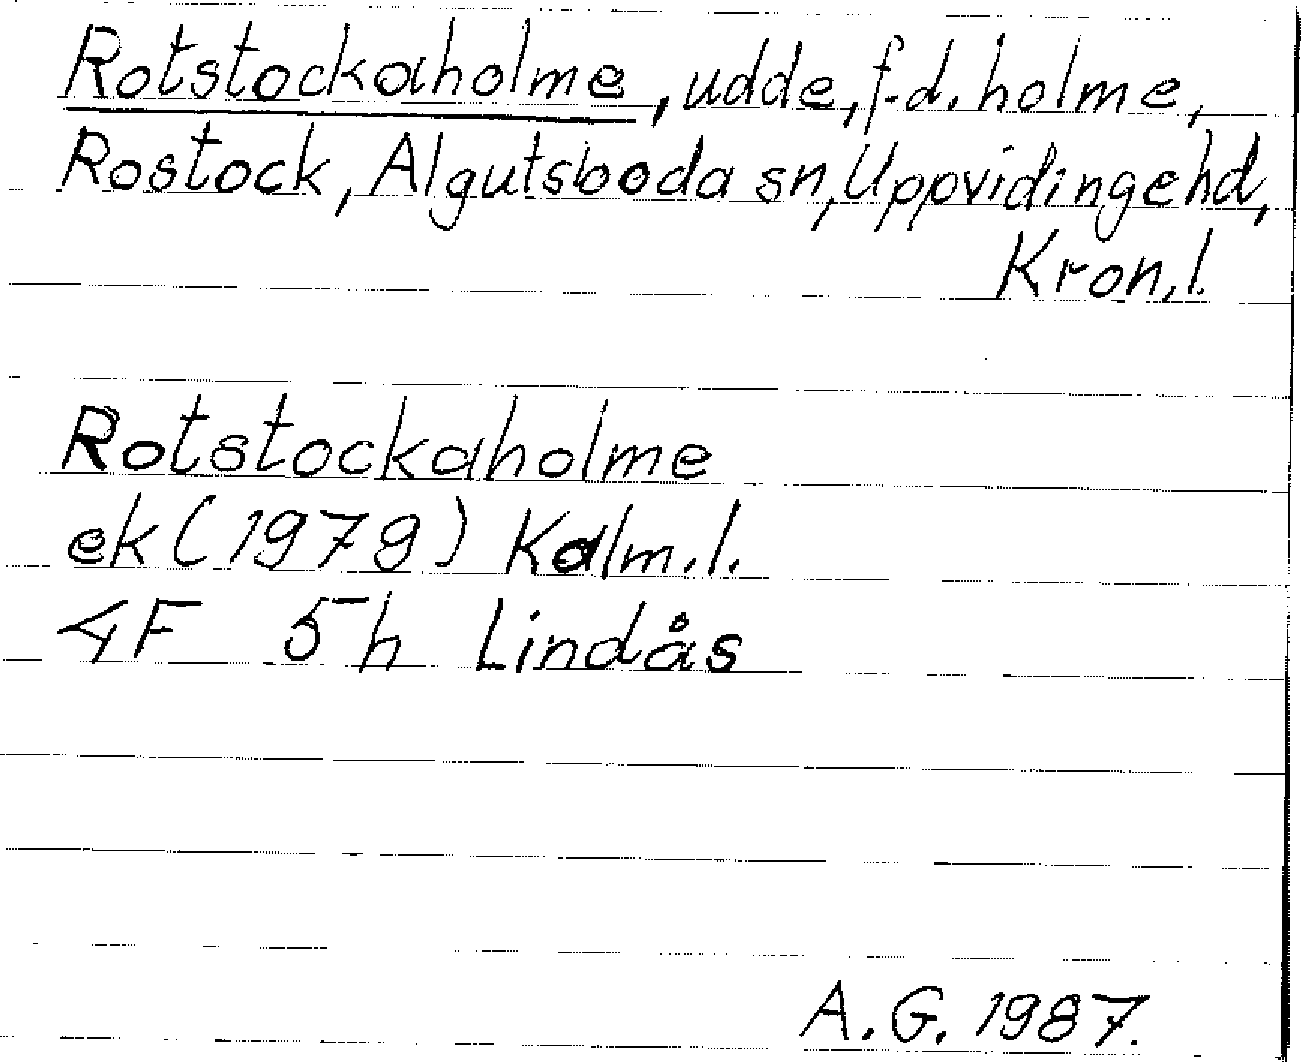 Rotstockaholme, udde, f.d. holme,
Rostock, Algutsboda sn, Uppvidinge hd,
Kron.l.
Rotstockaholme
ek (1979) Kalm.l.
4F 5h Lindås
A.G. 1987.